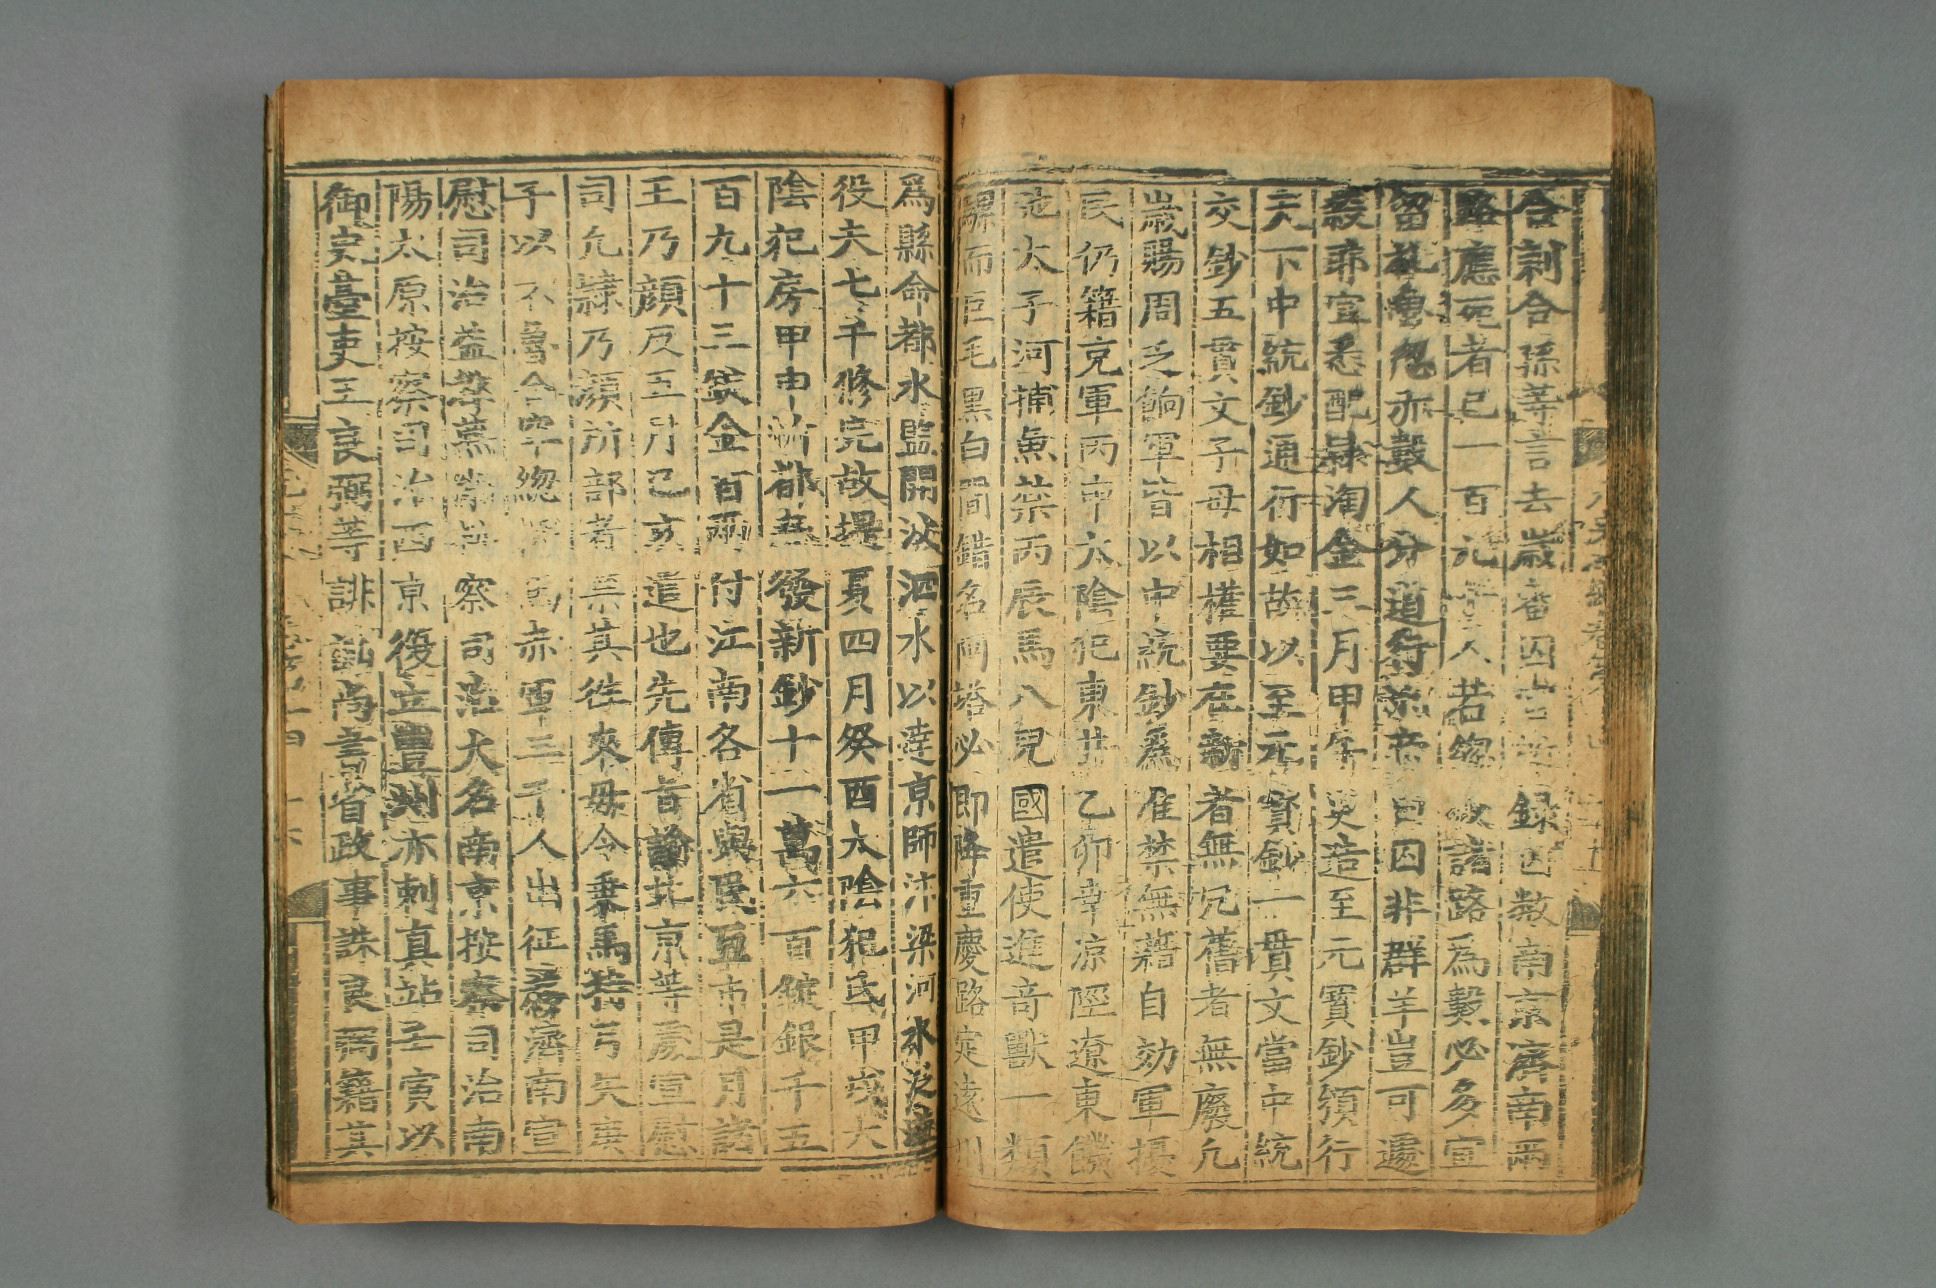 合剌合孫等言去歲審囚官所錄囚數南京濟南兩
路應死者已一百九十人若總校諸路為數必多宜
留札魯忽赤數人分道行刑帝曰囚非群羊豈可遽
殺耶宜悉配隸淘金三月甲午更造至元寶鈔頒行
天下中統鈔通行如故以至元寶鈔一貫文當中統
交鈔五貫文子母相權要在新者無冗舊者無廢凡
歲賜周乏餉軍皆以中統鈔為准禁無籍自効軍擾
民仍籍充軍丙申太陰犯東井乙卯幸涼陘遼東饑
弛太子河捕魚禁丙辰馬八兒國遣使進奇獸一類
騾而巨毛黑白間錯名阿塔必即降重慶路定遠州
為縣命都水監開汶泗水以達京師汴梁河水泛溢
役夫七千修完故堤夏四月癸酉太陰犯氐甲戌太
陰犯房甲申祈都無發新鈔十一萬六百錠銀千五
百九十三錠金百兩付江南各省與民互市是月諸
王乃顏反五月己亥遣也先傳旨諭北京等處宣慰
司凡隸乃顏所部者禁其往來毋令乘馬持弓矢庚
子以不魯合罕總探馬赤軍三千人出征移濟南宣
慰司治益都燕南按察司治大名南京按察司治南
陽太原按察司治西京復立豐州亦剌真站壬寅以
御史臺吏王良弼等誹訕尚書省政事誅良弼籍其